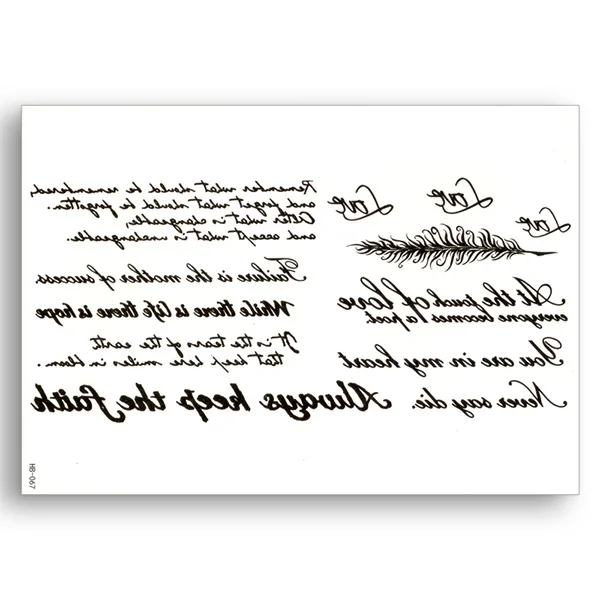 Love
Love
Love
At the touch of love
everyone becomes a poet.
You are in my heart
Never say die.
Remember what should be remembered,
and forget what should be forgotten.
Alter what is changeable,
and accept what is unchangeable.
Failure is the mother of success.
While there is life there is hope
It is the tears of the earth
that keep here smiles in bloom.
Always keep the faith
HB-067